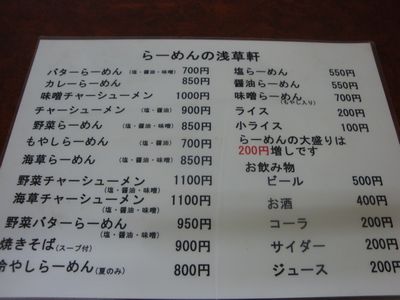 らーめんの浅草軒
バターらーめん(塩・醤油・味噌) 700円
カレーらーめん 850円
味噌チャーシューメン 1000円
チャーシューメン(塩・醤油) 900円
野菜らーめん(塩・醤油・味噌) 850円
もやしらーめん(塩・醤油) 700円
海草らーめん(塩・醤油・味噌) 850円
野菜チャーシューメン 1100円
(塩・醤油・味噌)
海草チャーシューメン 1100円
(塩・醤油・味噌)
野菜バターらーめん 950円
(塩・醤油・味噌)
焼きそば(スープ付) 900円
冷やしらーめん(夏のみ) 800円
塩らーめん 550円
醤油らーめん 550円
味噌らーめん 700円
(もやし入り)
ライス 200円
小ライス 100円
らーめんの大盛りは
200円増しです
お飲み物
ビール 500円
お酒 400円
コーラ 200円
サイダー 200円
ジュース 200円